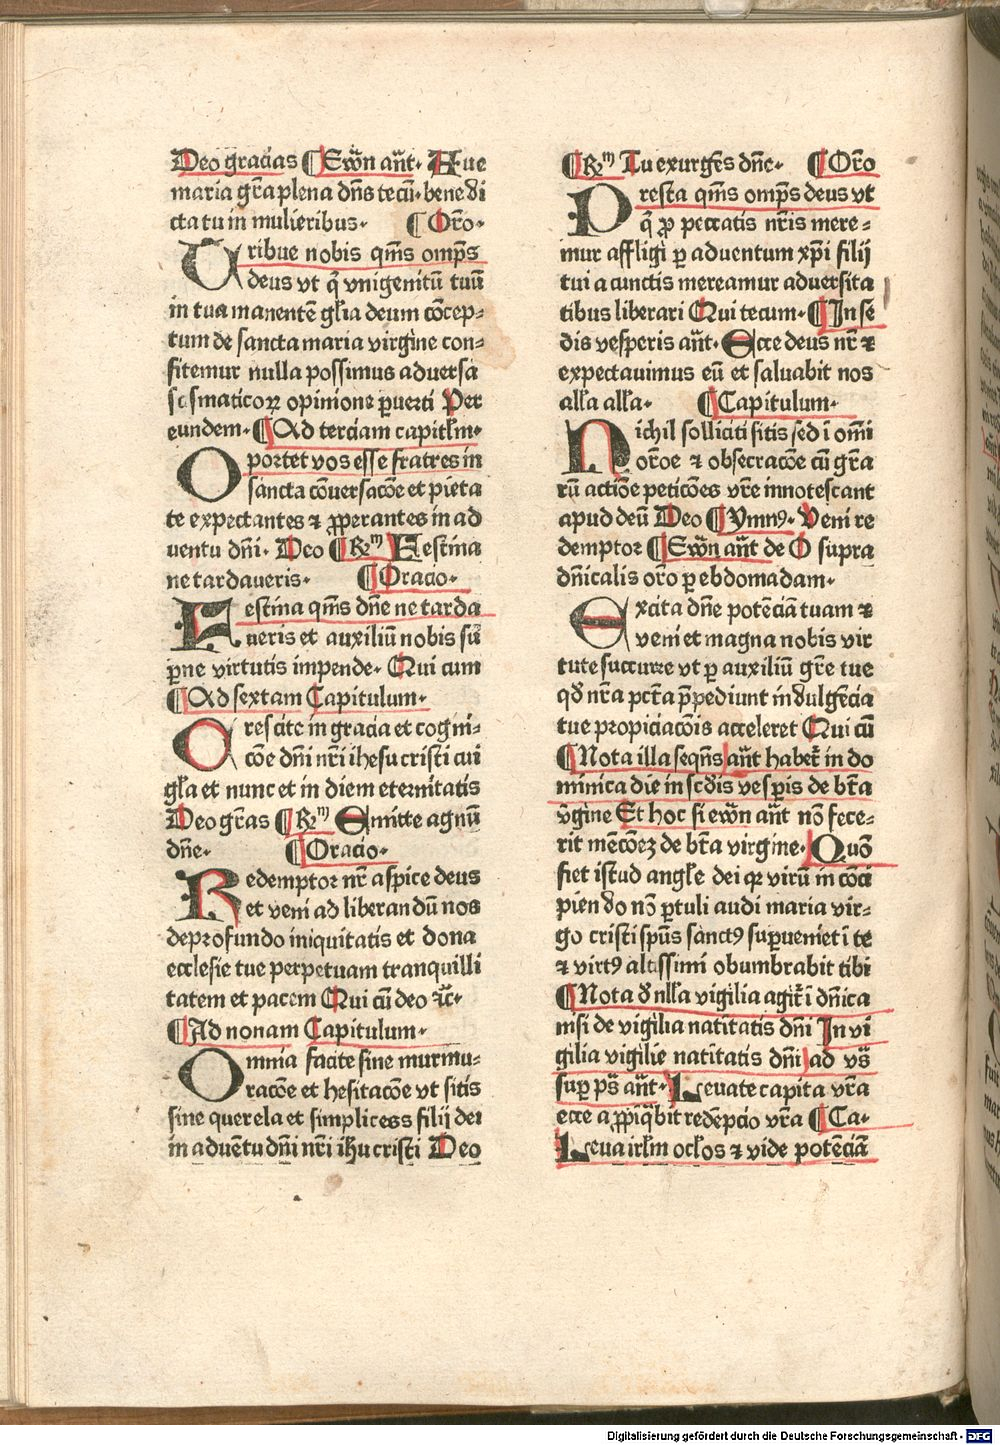 Deo gracias ¶ Ew̄n an̄t· Aue
maria gr̄a plena dn̄s tecū· bene di
cta tu in mulieribus· ¶ Or̄o·
Tribue nobis qm̄s omp̄s
deus vt q̄ vnigenitū tuū
in tua manentē gl̄ia deum cōcep⸗
tum de sancta maria virgine con⸗
fitemur nulla possimus aduersā
scismaticoꝝ opinione ꝑuerti Per
eundem· ¶ Ad terciam capitl̄m·
Oportet vos esse fratres in
sancta cōuersacōe et pieta
te expectantes ⁊ ꝓperantes in ad
uentu dn̄i· Deo ¶ Rm Festina
ne tardaueris· ¶ Oracio·
Festina qm̄s dn̄e ne tarda
ueris et auxiliū nobis sū
ꝑne virtutis impende· Qui cum
¶ Ad sextam Capitulum·
Crescite in gracia et cogni⸗
cōe dn̄i nr̄i ihesu cristi cui
gl̄a et nunc et in diem eternitatis
Deo gr̄as ¶ Rm Emitte agnū
dn̄e· ¶ Oracio·
Redemptor nr̄ aspice deus
et veni ad liberandū nos
de profundo iniquitatis et dona
ecclesie tue perpetuam tranquilli
tatem et pacem Qui cū deo ⁊c̄·
¶ Ad nonam Capitulum·
Omnia facite sine murmu⸗
racōe et hesitacōe vt sitis
sine querela et simplices filij dei
in aduētu dn̄i nr̄i ihu cristi Deo
¶ Rm Tu exurgēs dn̄e· ¶ Or̄o
Presta qm̄s omp̄s deus vt
q̄ ꝓ peccatis nr̄is mere⸗
mur affligi ꝑ aduentum xp̄i filij
tui a cunctis mereamur aduersita
tibus liberari Qui tecum· ¶ In se
dis vesperis an̄t· Ecce deus nr̄ ⁊
expectauimus eū et saluabit nos
all̄a all̄a· ¶ Capitulum·
Nichil solliciti sitis sed ī omī
or̄oe ⁊ obsecracōe cū gr̄a
rū actiōe peticōes vr̄e innotescant
apud deū Deo ¶ Ymnꝰ· Veni re
demptor ¶ Ew̄n an̄t de O supra
dn̄icalis or̄o ꝑ ebdomadam·
Excita dn̄e potēciā tuam ⁊
veni et magna nobis vir
tute succurre vt ꝑ auxiliū gr̄e tue
qd̄ nr̄a pct̄a p̄pediunt indulgēcia
tue propiciacōis acceleret Qui cū
¶ Nota illa seqn̄s an̄t habet̄ in do
minica die in scd̄is vesꝑis de bt̄a
v̄gine Et hoc si ew̄n an̄t nō fece⸗
rit mēcōez de bt̄a virgine· Quō
fiet istud angl̄e dei qꝛ virū in cōci
piendo nō ꝑtuli audi maria vir⸗
go cristi spūs sanctꝰ suꝑueniet ī te
⁊ virtꝰ altissimi obumbrabit tibi
¶ Nota ꝺ nll̄a vigilia agit̄ ī dn̄ica
nisi de vigilia natītatis dn̄i In vi
gilia vigilie natītatis dn̄i ad vs̄
suꝑ ps̄ an̄t· Leuate capita vr̄a
ecce aꝓpīq̄bit redēpcio vr̄a ¶ Ca⸗
Leua irl̄m ocl̄os ⁊ vide potēciā
Digitalisierung gefördert durch die Deutsche Forschungsgemeinschaft - DFG